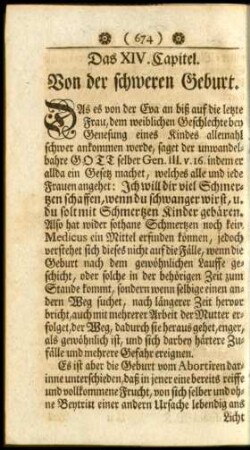 ( 674 )
Das XIV. Capitel.
Von der schweren Geburt.
DAs es von der Eva an biß auf die letzte
Frau, dem weiblichen Geschlechte bey
Genesung eines Kindes allemahl
schwer ankommen werde, saget der unwandel-
bahre GOTT selber Gen. III. v. 16. indem er
allda ein Gesetz machet, welches alle und jede
Frauen angehet: Ich will dir viel Schmer-
tzen schaffen, wenn du schwanger wirst, u.
du solt mit Schmertzen Kinder gebären.
Also hat wider sothane Schmertzen noch kein
Medicus ein Mittel erfinden können, jedoch
verstehet sich dieses nicht auf die Fälle, wenn die
Geburt nach dem gewöhnlichen Lauffe ge-
schicht, oder solche in der behörigen Zeit zum
Stande kommt, sondern wenn selbige einen an-
dern Weg suchet, nach längerer Zeit hervor
bricht, auch mit mehrerer Arbeit der Mutter er-
folget, der Weg, dadurch sie heraus gehet, enger,
als gewöhnlich ist, und sich darbey härtere Zu-
fälle und mehrere Gefahr ereignen.
Es ist aber die Geburt vom Abortiren dar-
inne unterschieden, daß in jener eine bereits reiffe
und vollkommene Frucht, von sich selber und oh-
ne Beytritt einer andern Ursache lebendig ans
Licht